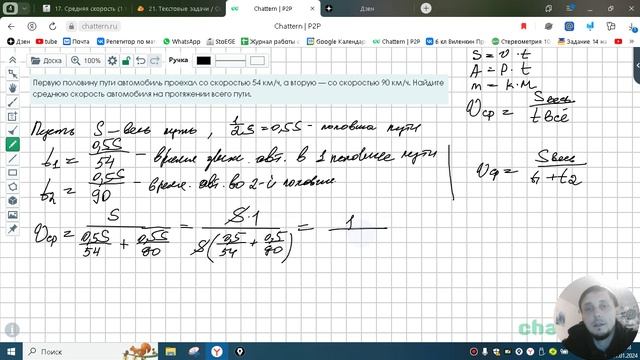 4
17. Средняя скорость (1
21. Текстовые задачи / С
Chattern | P2P
Дзен
chattern.ru
Chattern | P2P
Дзен
Почта
Репетитор по ма
WhatsApp
StoEGE
Журнал работы -
Google Календарь
Chattern | P2P
6 кл Виленкин Пр
Стереометрия 10
Задание 14 на
Доска
100%
Ручка
Первую половину пути автомобиль проехал со скоростью 54 км/ч, а вторую — со скоростью 90 км/ч. Найдите
среднюю скорость автомобиля на протяжении всего пути.
S = v · t
A = p · t
m = k · M
Vср = Sвсё / tвсё
Пусть S – весь путь, 1/2 S = 0,5S – половина пути
t1 = 0,5S / 54 – время движ. авт. в 1 половине пути
t2 = 0,5S / 90 – время. авт. во 2-й половине
Vср = Sвсё / t1 + t2
Vср = S / (0,5S/54 + 0,5S/90) = S·1 / S(0,5/54 + 0,5/90) = 1
cha
Поиск
.01.2024